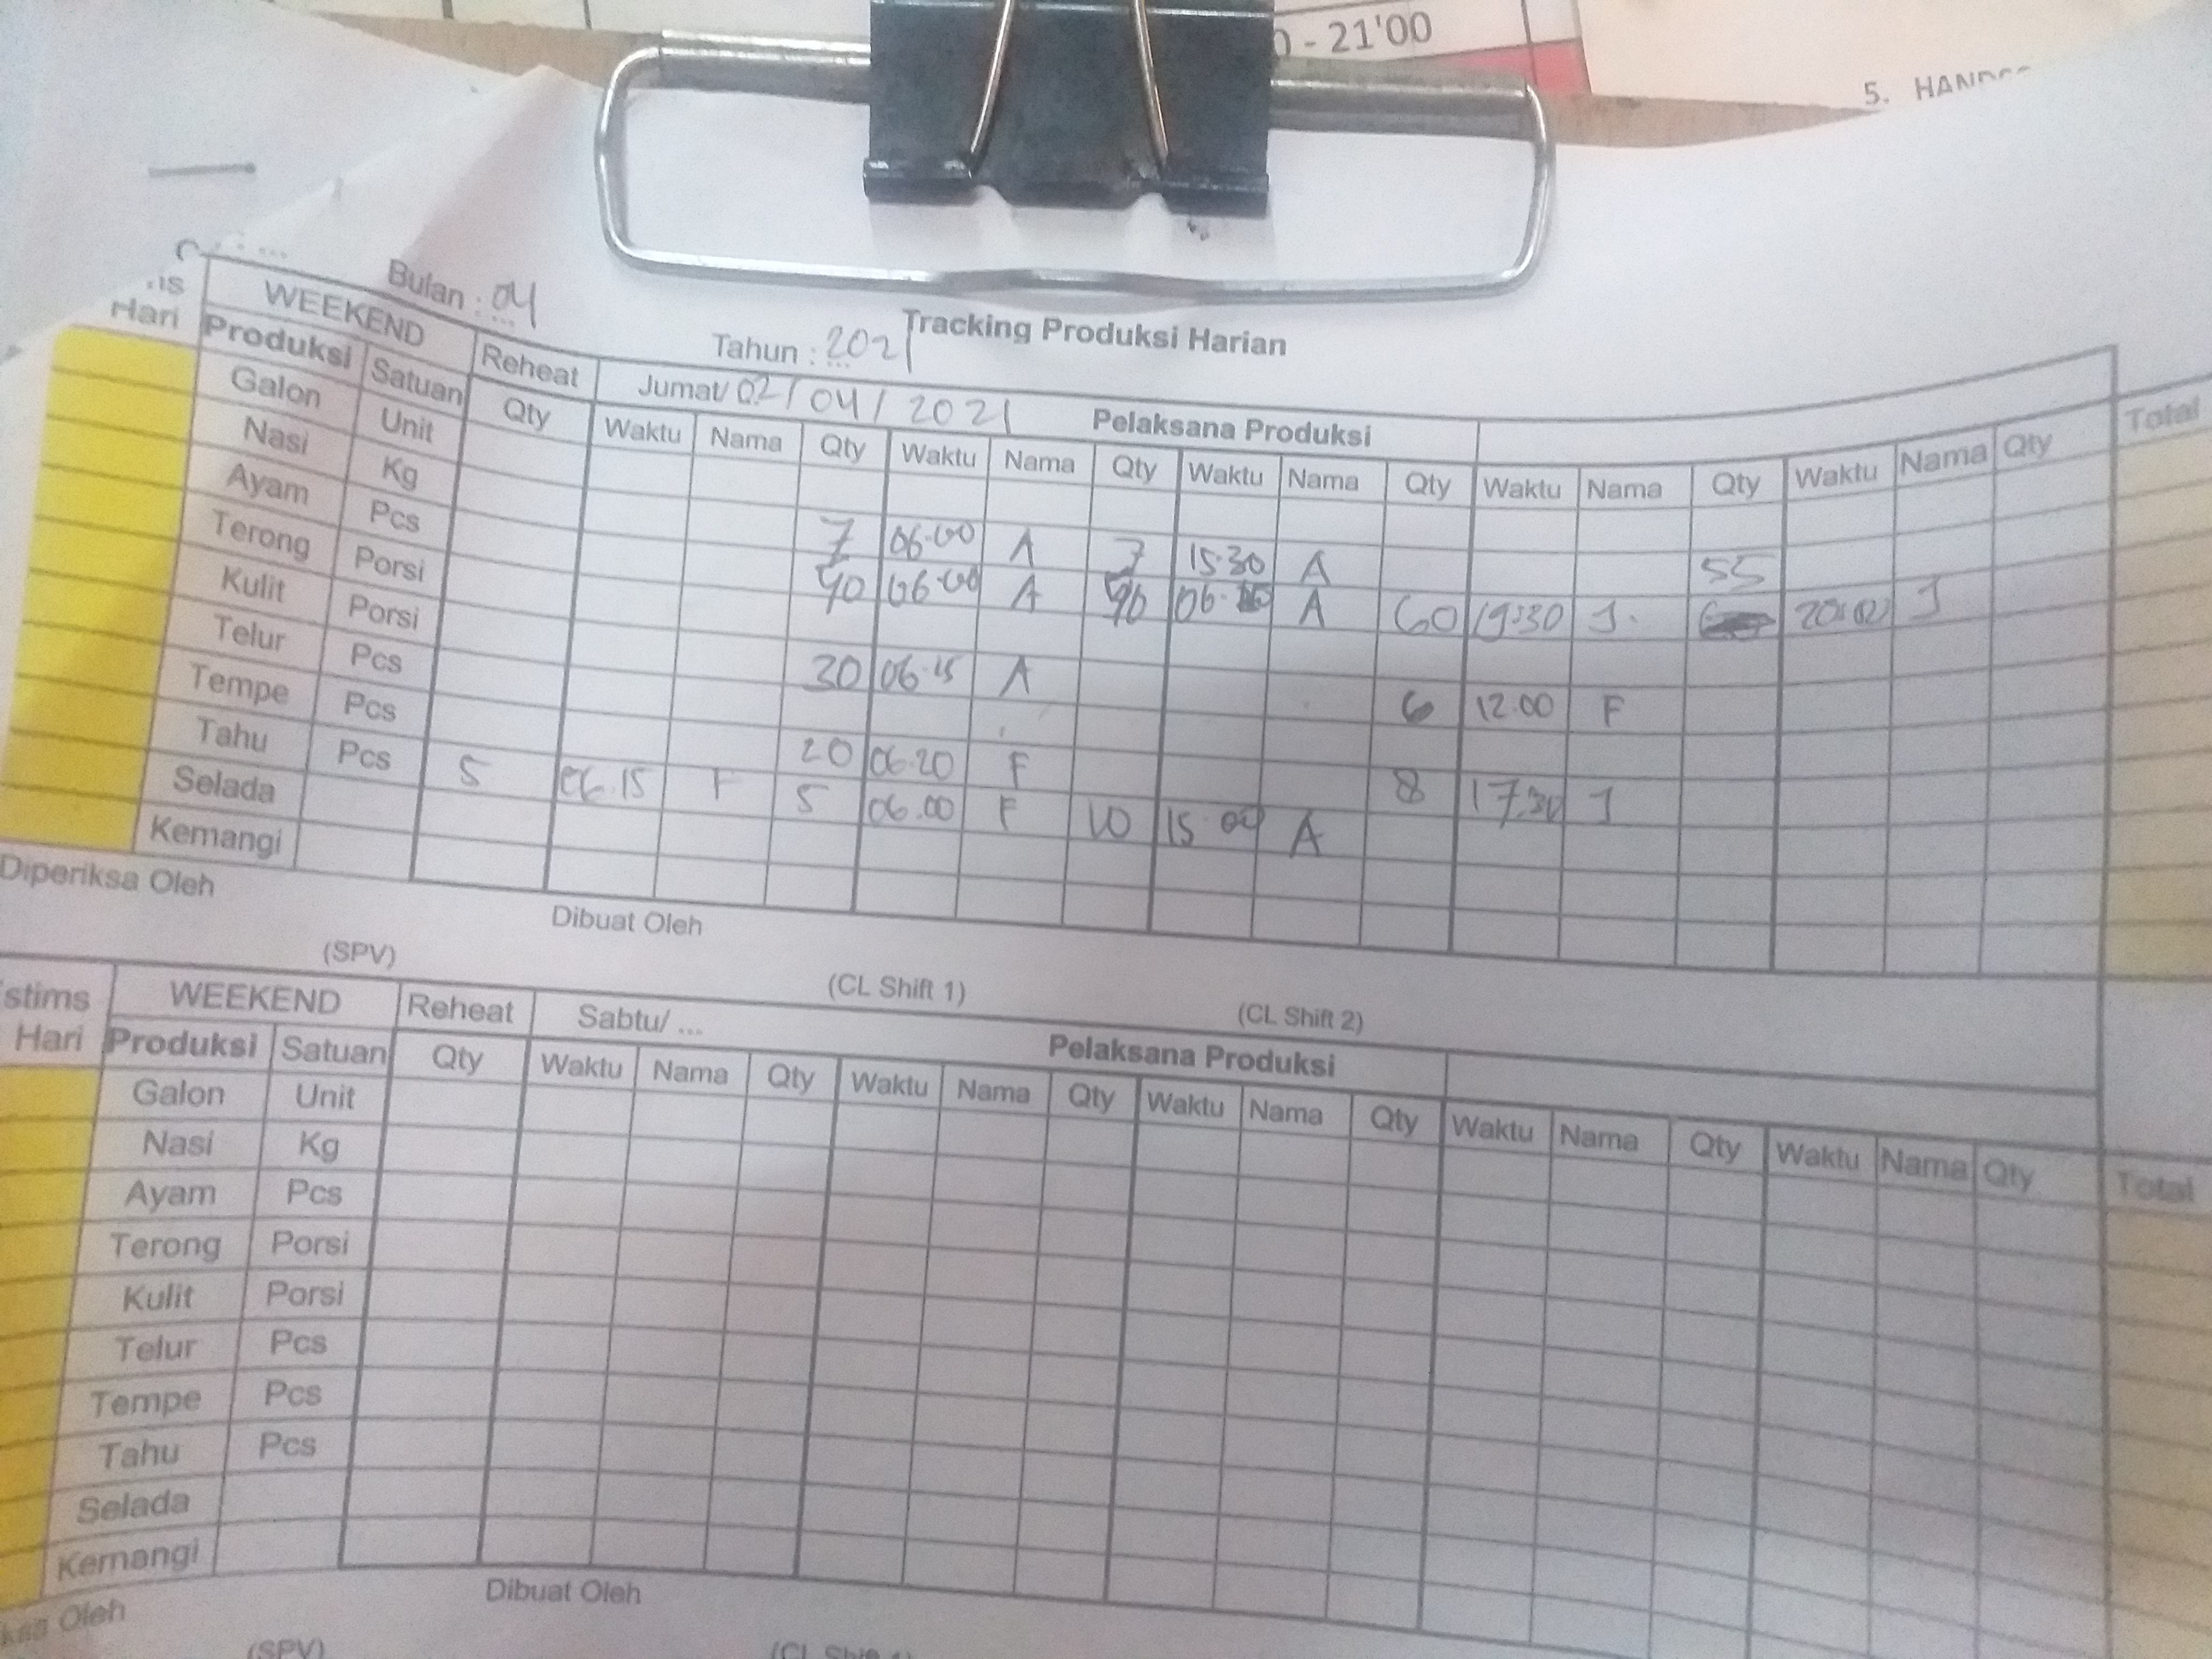 - 21'00
5. HAND
Bulan : 04
Tahun : 2021
Tracking Produksi Harian
Hari WEEKEND Reheat Jumat/ 02/04/2021 Pelaksana Produksi Total
Produksi Satuan Qty Waktu Nama Qty Waktu Nama Qty Waktu Nama Qty Waktu Nama Qty Waktu Nama Qty
Galon Unit
Nasi Kg 7 06.00 A 7 15.30 A
Ayam Pcs 90 06.00 A 90 06. A 60 19:30 J. 55 J
Terong Porsi
Kulit Porsi 30 06.15 A 6 12.00 F
Telur Pcs
Tempe Pcs 20 06.20 F 8 17.30 J
Tahu Pcs 5 06.15 F 5 06.00 F 10 15 00 A
Selada
Kemangi
Diperiksa Oleh Dibuat Oleh
(SPV) (CL Shift 1) (CL Shift 2)
stims Hari WEEKEND Reheat Sabtu/ ... Pelaksana Produksi
Produksi Satuan Qty Waktu Nama Qty Waktu Nama Qty Waktu Nama Qty Waktu Nama Qty Waktu Nama Qty Total
Galon Unit
Nasi Kg
Ayam Pcs
Terong Porsi
Kulit Porsi
Telur Pcs
Tempe Pcs
Tahu Pcs
Selada
Kemangi
Oleh Dibuat Oleh
(SPV) (CL Shift 1)